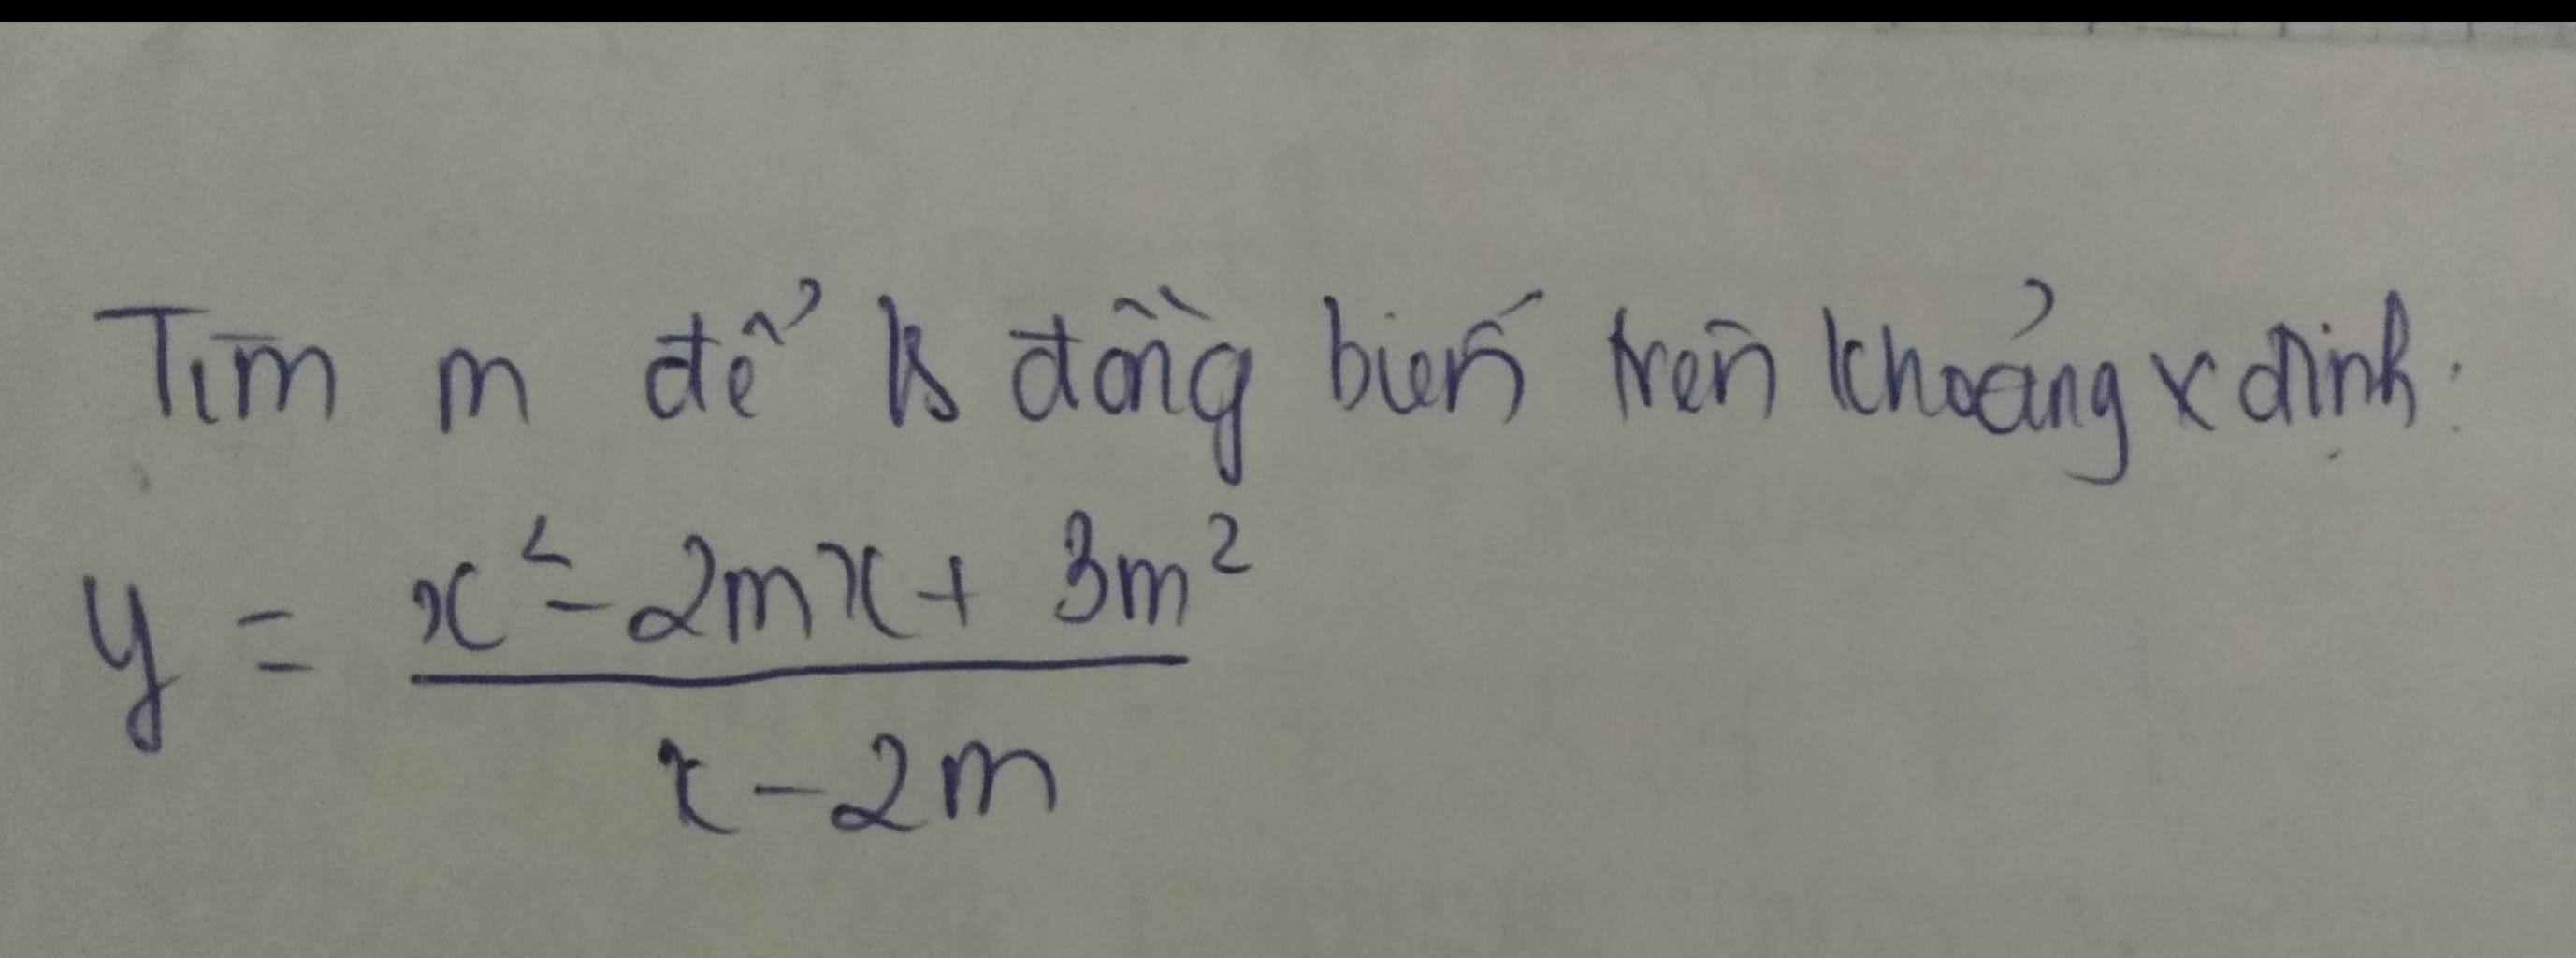 Tìm m để hs đồng biến trên khoảng x định:
y = x² - 2mx + 3m² / x - 2m